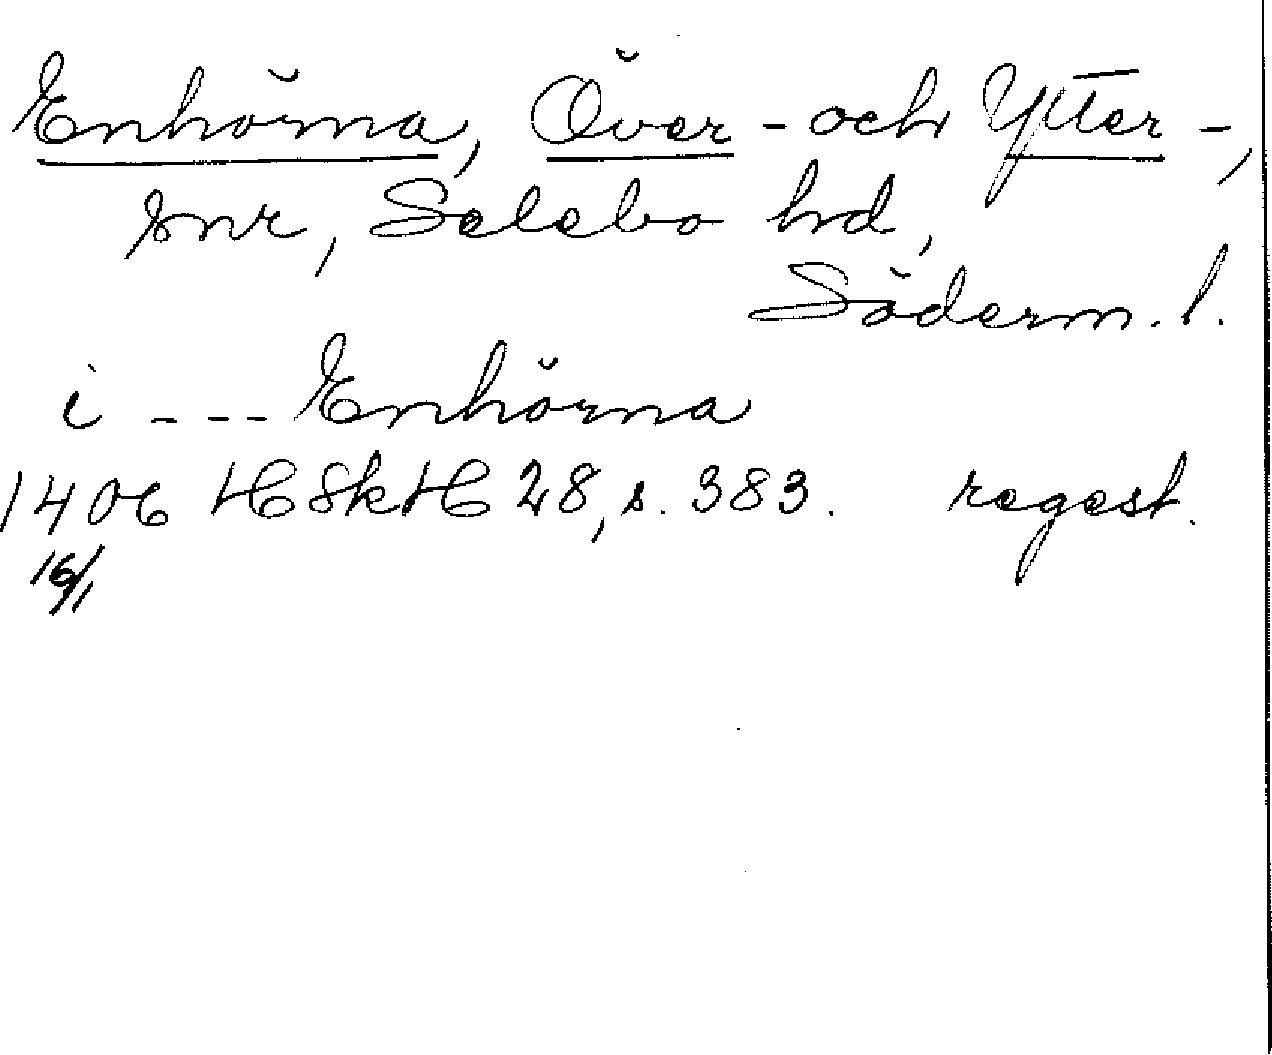 Enhörna, Över- och Ytter-,
snr, Selebo hd,
Söderm. l.
i --- Enhörna
1406 HSkH 28, s. 383. regest.
16/1